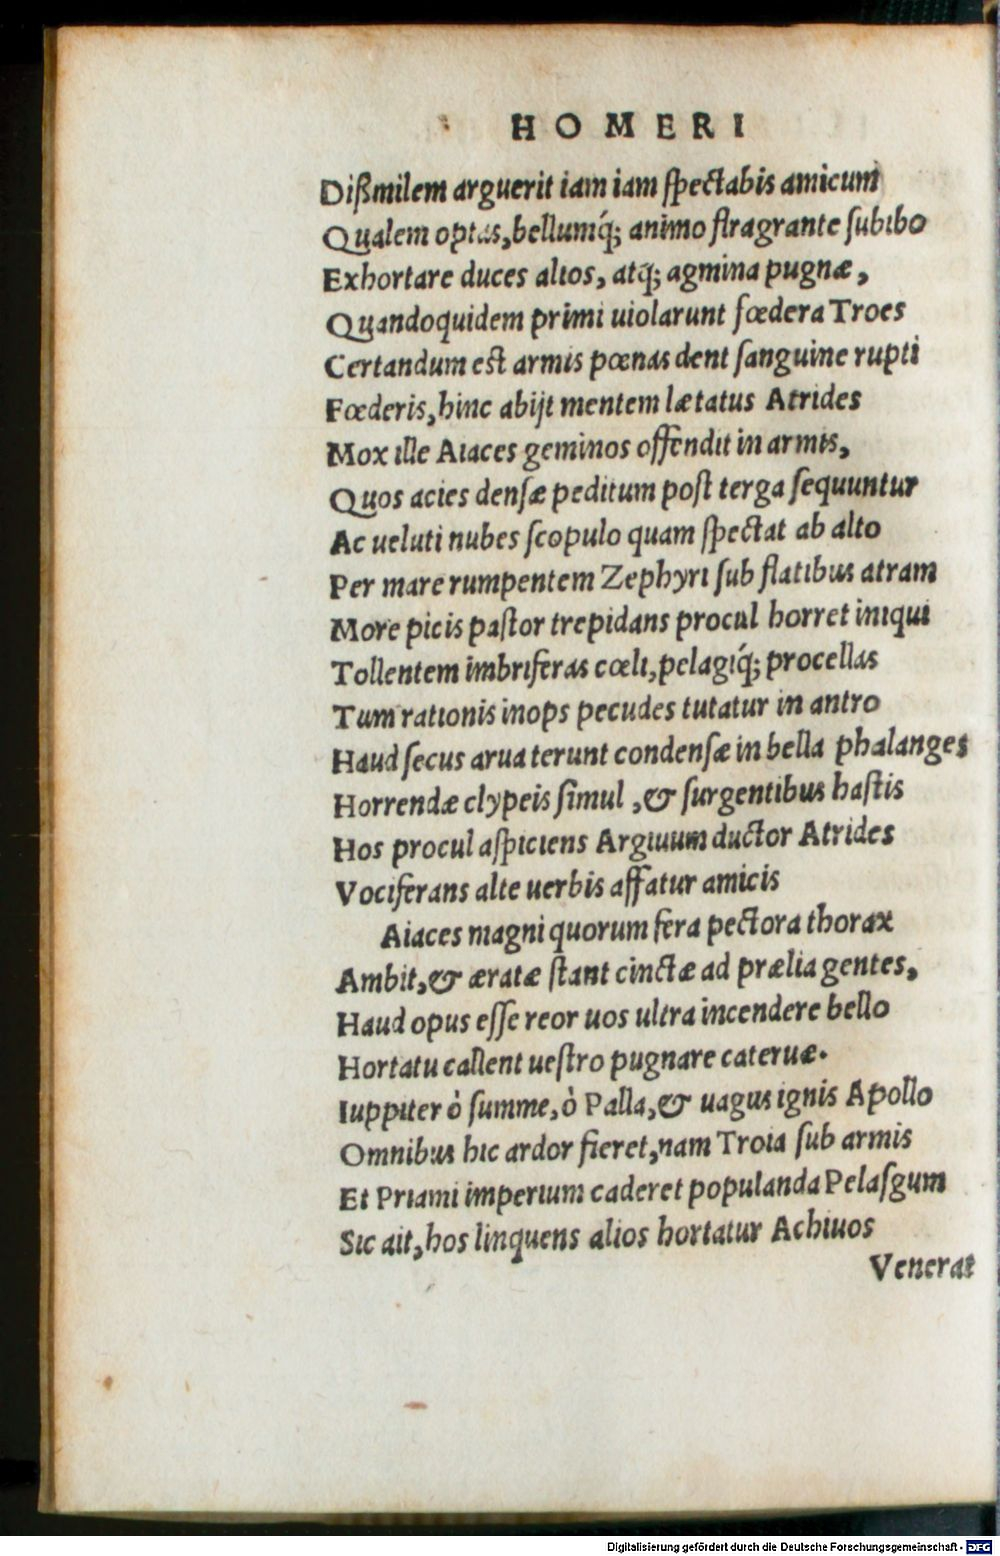 HOMERI
Dißimilem arguerit iam iam spectabis amicum
Qualem optas, bellumq́; animo flragrante subibo
Exhortare duces alios, atq; agmina pugnæ,
Quandoquidem primi uiolarunt fœdera Troes
Certandum est armis pœnas dent sanguine rupti
Fœderis, hinc abijt mentem lætatus Atrides
Mox ille Aiaces geminos offendit in armis,
Quos acies densæ peditum post terga sequuntur
Ac ueluti nubes scopulo quam spectat ab alto
Per mare rumpentem Zephyri sub flatibus atram
More picis pastor trepidans procul horret iniqui
Tollentem imbriferas cœli, pelagiq́; procellas
Tum rationis inops pecudes tutatur in antro
Haud secus arua terunt condensæ in bella phalanges
Horrendæ clypeis simul, & surgentibus hastis
Hos procul aspiciens Argiuum ductor Atrides
Vociferans alte uerbis affatur amicis
Aiaces magni quorum fera pectora thorax
Ambit, & æratæ stant cinctæ ad prælia gentes,
Haud opus esse reor uos ultra incendere bello
Hortatu callent uestro pugnare cateruæ.
Iuppiter ò summe, ò Palla, & uagus ignis Apollo
Omnibus hic ardor fieret, nam Troia sub armis
Et Priami imperium caderet populanda Pelasgum
Sic ait, hos linquens alios hortatur Achiuos
Venerat
Digitalisierung gefördert durch die Deutsche Forschungsgemeinschaft - DFG